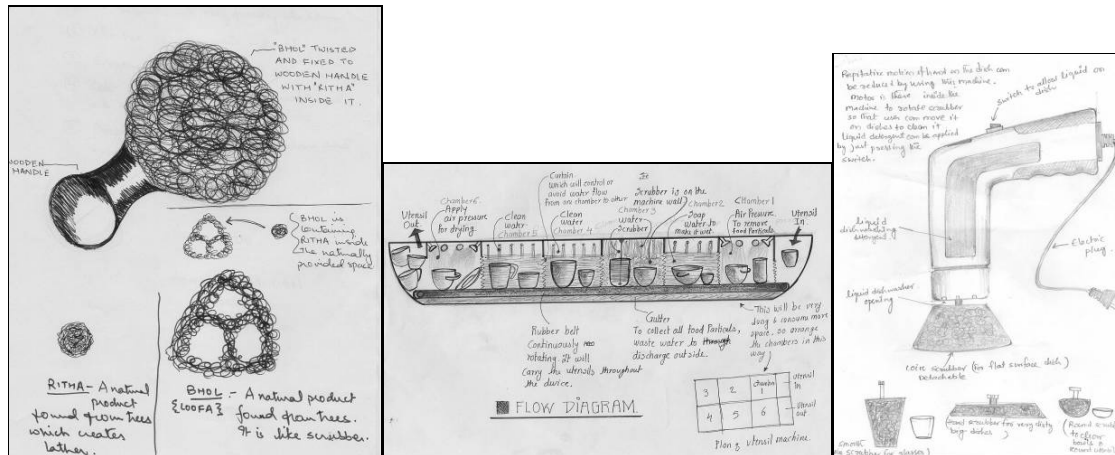 "BHOL" TWISTED
AND FIXED TO
WOODEN HANDLE
WITH "RITHA"
INSIDE IT.
WOODEN
HANDLE
BHOL is
containing
RITHA inside
the naturally
provided space
RITHA - A natural
product
found from trees
which creates
lather.
BHOL - A natural product
{LOOFA}
found from trees.
It is like scrubber.
Utensil
Out
Chamber 6.
Apply
air pressure
for drying
Clean
water
chamber 5
Curtain
which will control or
avoid water flow
from one chamber to other
Clean
water
chamber 4
Scrubber is on the
machine wall)
Chamber 3
water
Scrubber
Chamber 2
Soap
water to
make it wet.
Chamber 1
Air Pressure.
To remove
food Particals
Utensil
In
Rubber belt
Continuously
rotating. It will
Carry the utensils throughout
the device.
Gutter
To collect all food Particals,
waste water to through
discharge outside.
This will be very
long & consume more
space, so arrange
the chambers in this
way
FLOW DIAGRAM
3 2 Chamber 1
4 5 6
Utensil
In
Utensil
out
Plan of utensil machine.
Repetative motion of hand on the dish can
be reduced by using this machine.
motor is there inside the
machine to rotate scrubber
so that user can move it
on dishes to clean it
liquid detergent can be applied
by just pressing the
switch.
switch to allow liquid on
dish
liquid
dishwashing
detergent
Electric
plug.
liquid dishwasher
opening
coire scrubber (for flat surface dish)
Detachable
scrubber for glasses)
scrubber for very dirty
big dishes)
(Round
to clean
bowls &
round utensil